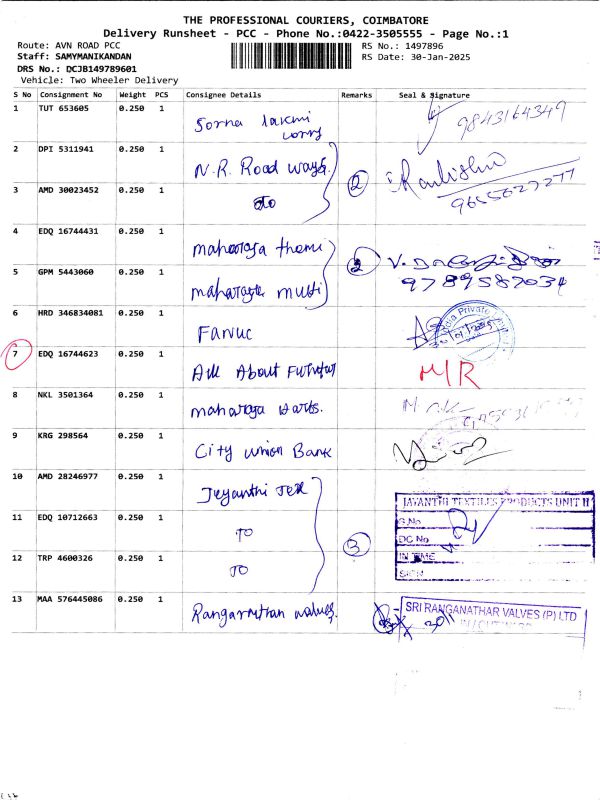 THE PROFESSIONAL COURIERS, COIMBATORE
Delivery Runsheet - PCC - Phone No.:0422-3505555 - Page No.:1
Route: AVN ROAD PCC
RS No.: 1497896
Staff: SAMYMANIKANDAN
RS Date: 30-Jan-2025
DRS No.: DCJB149789601
Vehicle: Two Wheeler Delivery
S No Consignment No Weight PCS Consignee Details Remarks Seal & Signature
1 TUT 653605 0.250 1 Sorna laxmi
lorry
9843164349
2 DPI 5311941 0.250 1 N.R. Road ways.
2
3 AMD 30023452 0.250 1 do
9655627277
4 EDQ 16744431 0.250 1 maharaja thami
2
5 GPM 5443060 0.250 1 maharaja multi
9789587034
6 HRD 346834081 0.250 1 Fanuc
7 EDQ 16744623 0.250 1 All About Furnitur
M/R
8 NKL 3501364 0.250 1 maharaja
9 KRG 298564 0.250 1 City union Bank
10 AMD 28246977 0.250 1 Jeyanthi Tex
JAYANTHI TEXTILES PRODUCTS UNIT II
G.No
11 EDQ 10712663 0.250 1 TO
DC No
3
IN TIME
12 TRP 4600326 0.250 1 TO
SIGN
13 MAA 576445086 0.250 1 Ranganathan valves.
SRI RANGANATHAR VALVES (P) LTD